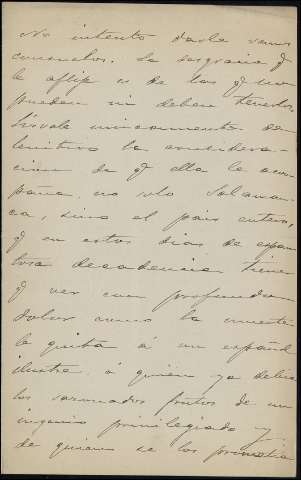 No intento darle vanos
consuelos. La desgracia q
le aflije es de las q no
pueden ni deben tenerlos.
Sírvale únicamente de
lenitivo la considera-
ción de q en ella le acom-
paña no solo Salaman-
ca, sino el país entero,
q en estos días de espan-
tosa decadencia tiene
q ver con profundo
dolor como la muerte
le quita á un español
ilustre á quién ya debía
los sazonados frutos de un
ingenio privilegiado y
de quien se los prometía